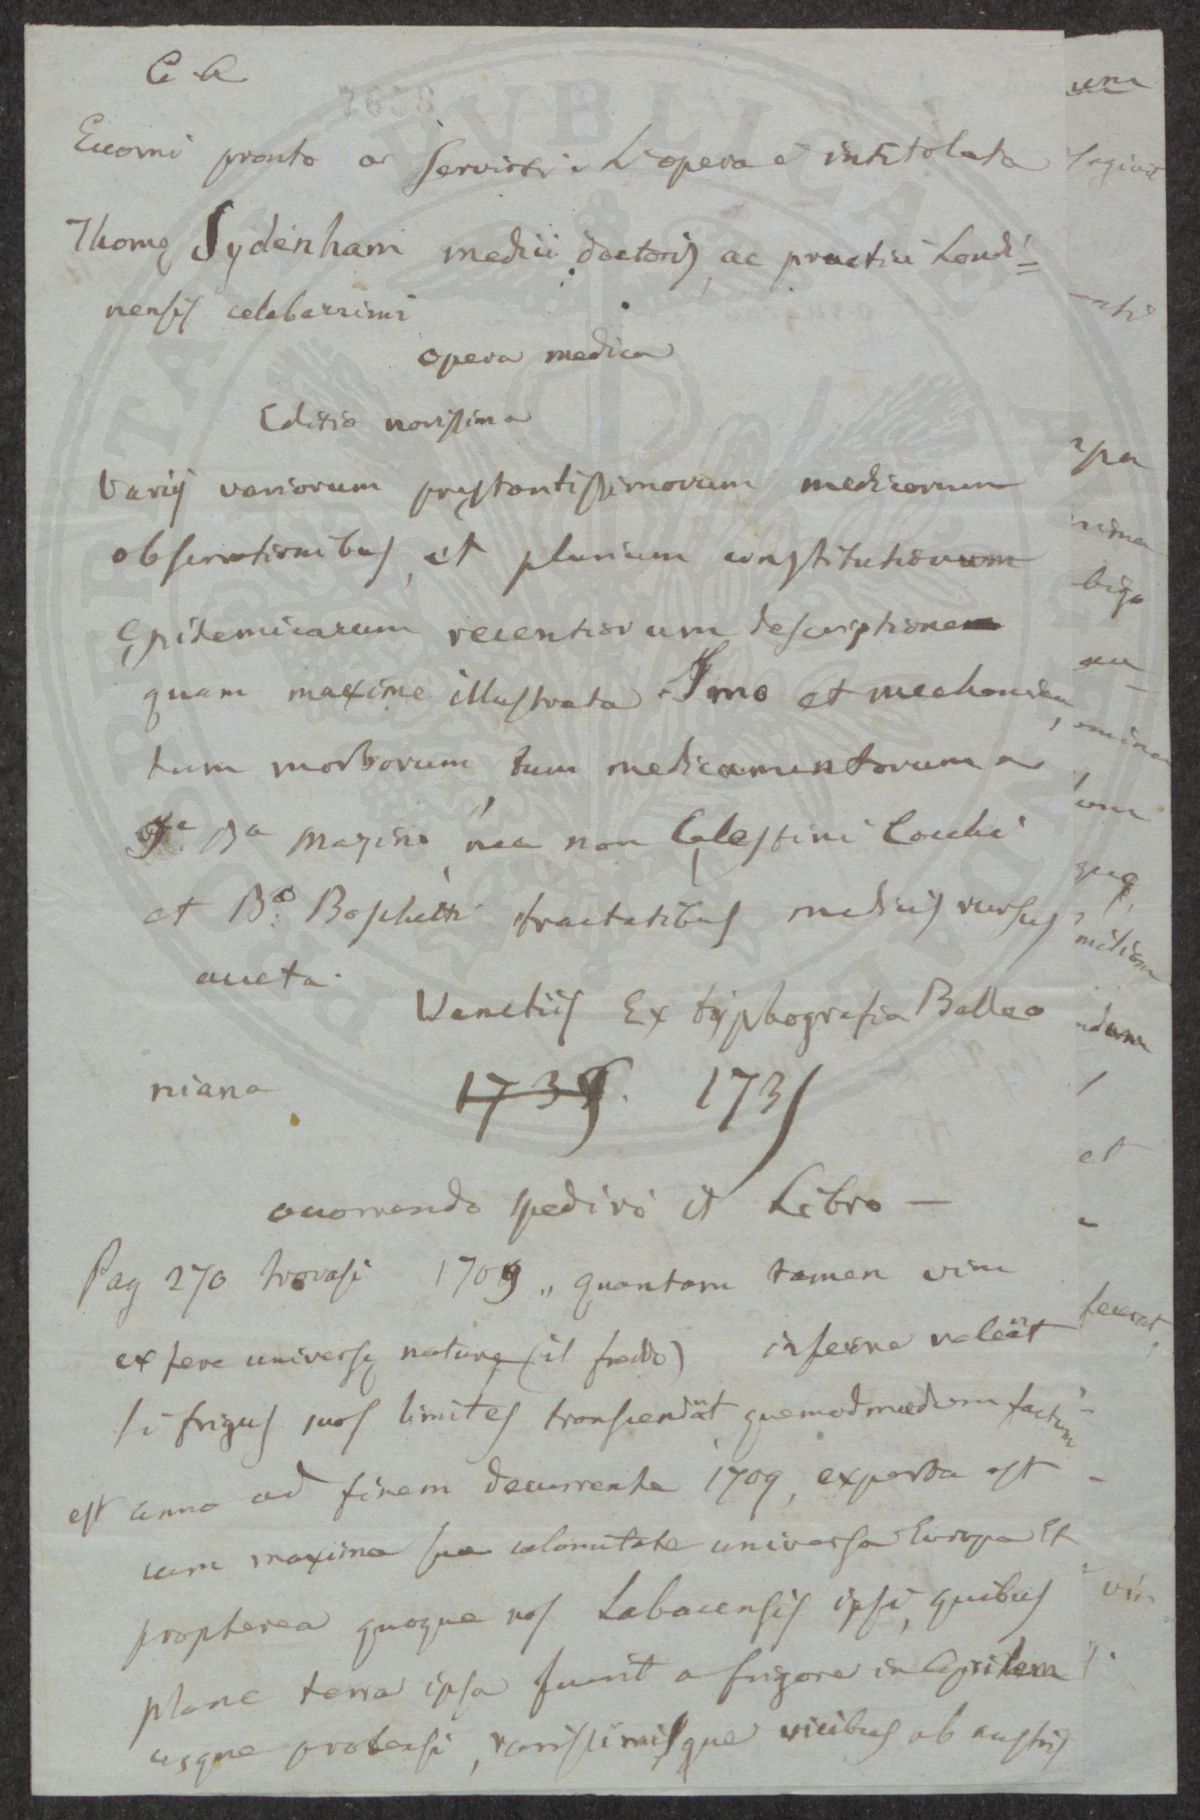 C. A
Eccomi pronto a servirti. L'opera è intitolata
Thomę Sydenham medici doctoris, ac practici Londi=
nensis celebarrimi
opera medica
Editio novissima
Varijs variorum pręstantissimorum medicorum
observationibus, et plurium constitutionum
Epidemicarum recentiorum descriptione
quam maxime illustrata. Imo et mechanica,
tum morborum, tum medicamentorum a
Ba Mazino nec non Cęlestini Cocchi
et Bo. Boschetti tractatibus medicis rursus
aucta.
Venetiis Ex typhografia Balleo
niana 1735. 1735
occorrendo spedirò il Libro —
Pag 270 trovasi 1709 „ quantam tamen vim
ex fere universę naturę (il freddo) inferre valeat
si frigus suos limites transcendat, quemadmodum factum
est anno ad finem decurrente 1709, experta est
cum maxima sua calamitate universa Europa Et
propterea quoque nos Labacenses ipsi, quibus
plane terra ipsa fuit a frigore in Aprilem
usque, rarissimisque vicibus ab austris
una
anti
nima
biga
au-
omina
quę,
ndum
et
fecerat,